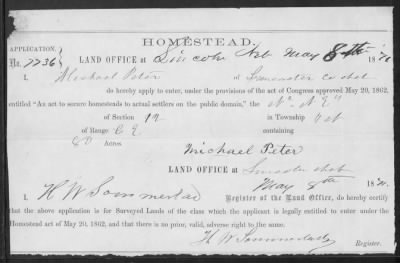 HOMESTEAD.
APPLICATION.
No. 7736
LAND OFFICE at Lincoln Neb May 8th 187
I, Michael Peter of Lancaster Co Neb
do hereby apply to enter, under the provisions of the act of Congress approved May 20, 1862,
entitled "An act to secure homesteads to actual settlers on the public domain," the
of Section 12 in Township
of Range 6 E containing
Acres.
Michael Peter
LAND OFFICE at Lincoln Neb
May 8th 187
I, H W Sommerlad Register of the Land Office, do hereby certify
that the above application is for Surveyed Lands of the class which the applicant is legally entitled to enter under the
Homestead act of May 20, 1862, and that there is no prior, valid, adverse right to the same.
H W Sommerlad
Register.